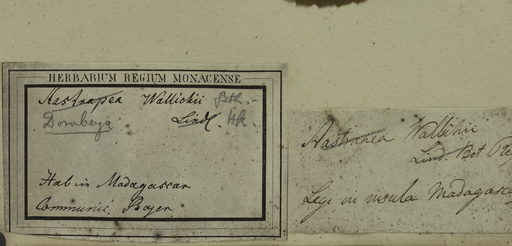 HERBARIUM REGIUM MONACENSE
Astrapea Wallichii Bth. -
Dombeya Lindl. Hk
Hab in Madagascar
Communic. Bojer
Astrapea Wallihii
Lind. Bot Re
Legi in insula Madagasca